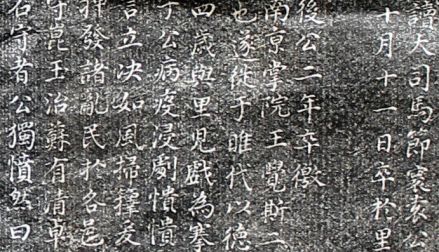 讀大司馬節寰袁公
十月十一日卒於里
後公二年卒
南京掌院王覺斯二
也遂徙于睢代以德
四歲與里兒戲為搴
于公病疫浸劇憒憒
言立决如風掃籜友
發諸亂民於各邑
守崑玉冶蘇有清
石守者公獨憤然曰